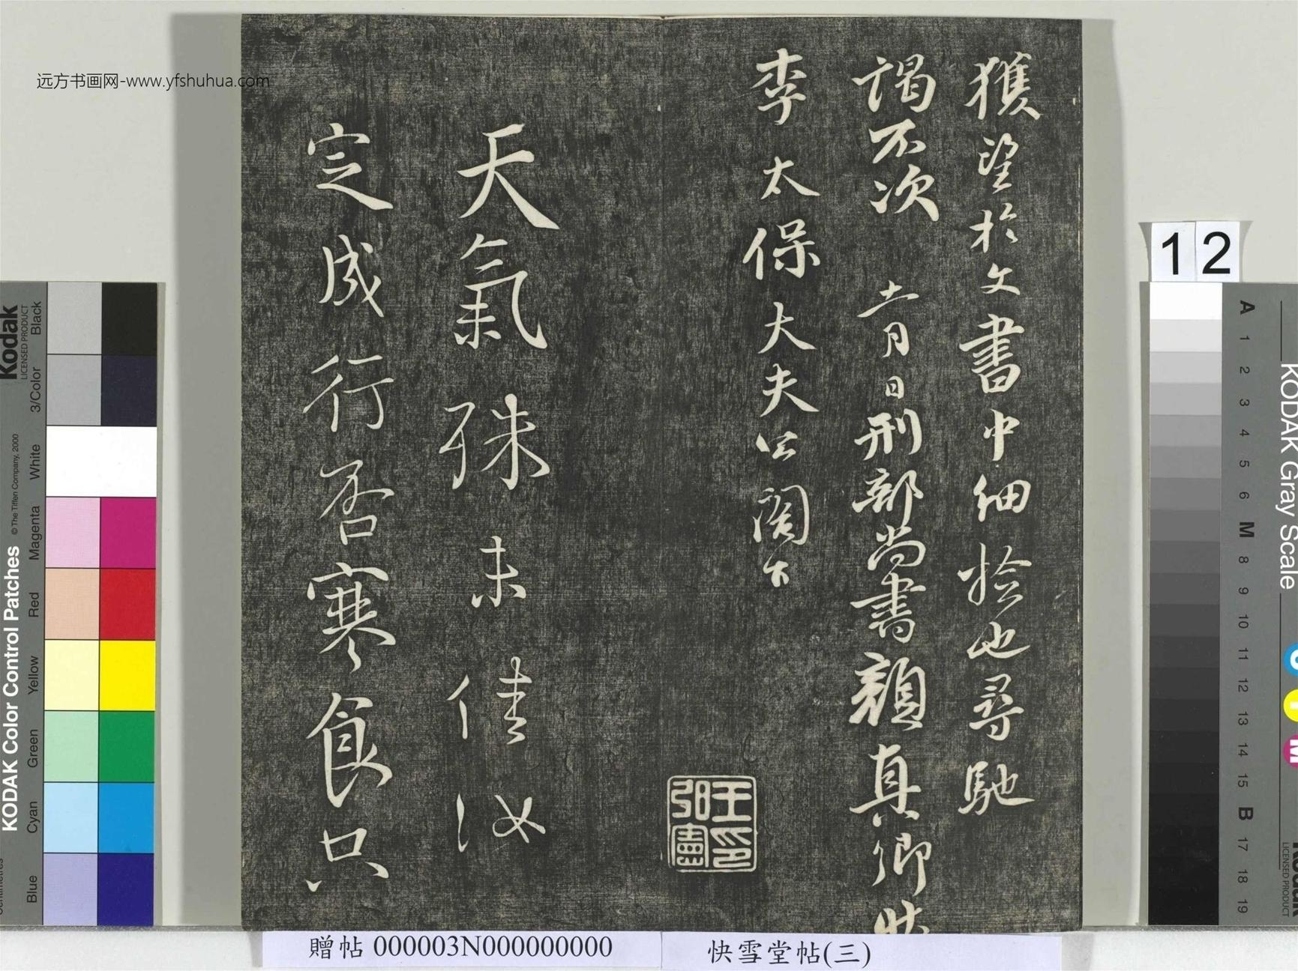 獲望於文書中細撿也尋馳
謁不次 十一月日刑部尚書顏真卿狀
李太保大夫公閤下
天氣殊未佳汝
定成行否寒食只
王弘憲印
远方书画网-www.yfshuhua.com
贈帖 000003N000000000
快雪堂帖(三)
12
KODAK Color Control Patches
© The Tiffen Company, 2000
Kodak
LICENSED PRODUCT
Black
3/Color
White
Magenta
Red
Yellow
Green
Cyan
Blue
KODAK Gray Scale
A
1
2
3
4
5
6
M
8
9
10
11
12
13
14
15
B
17
18
19